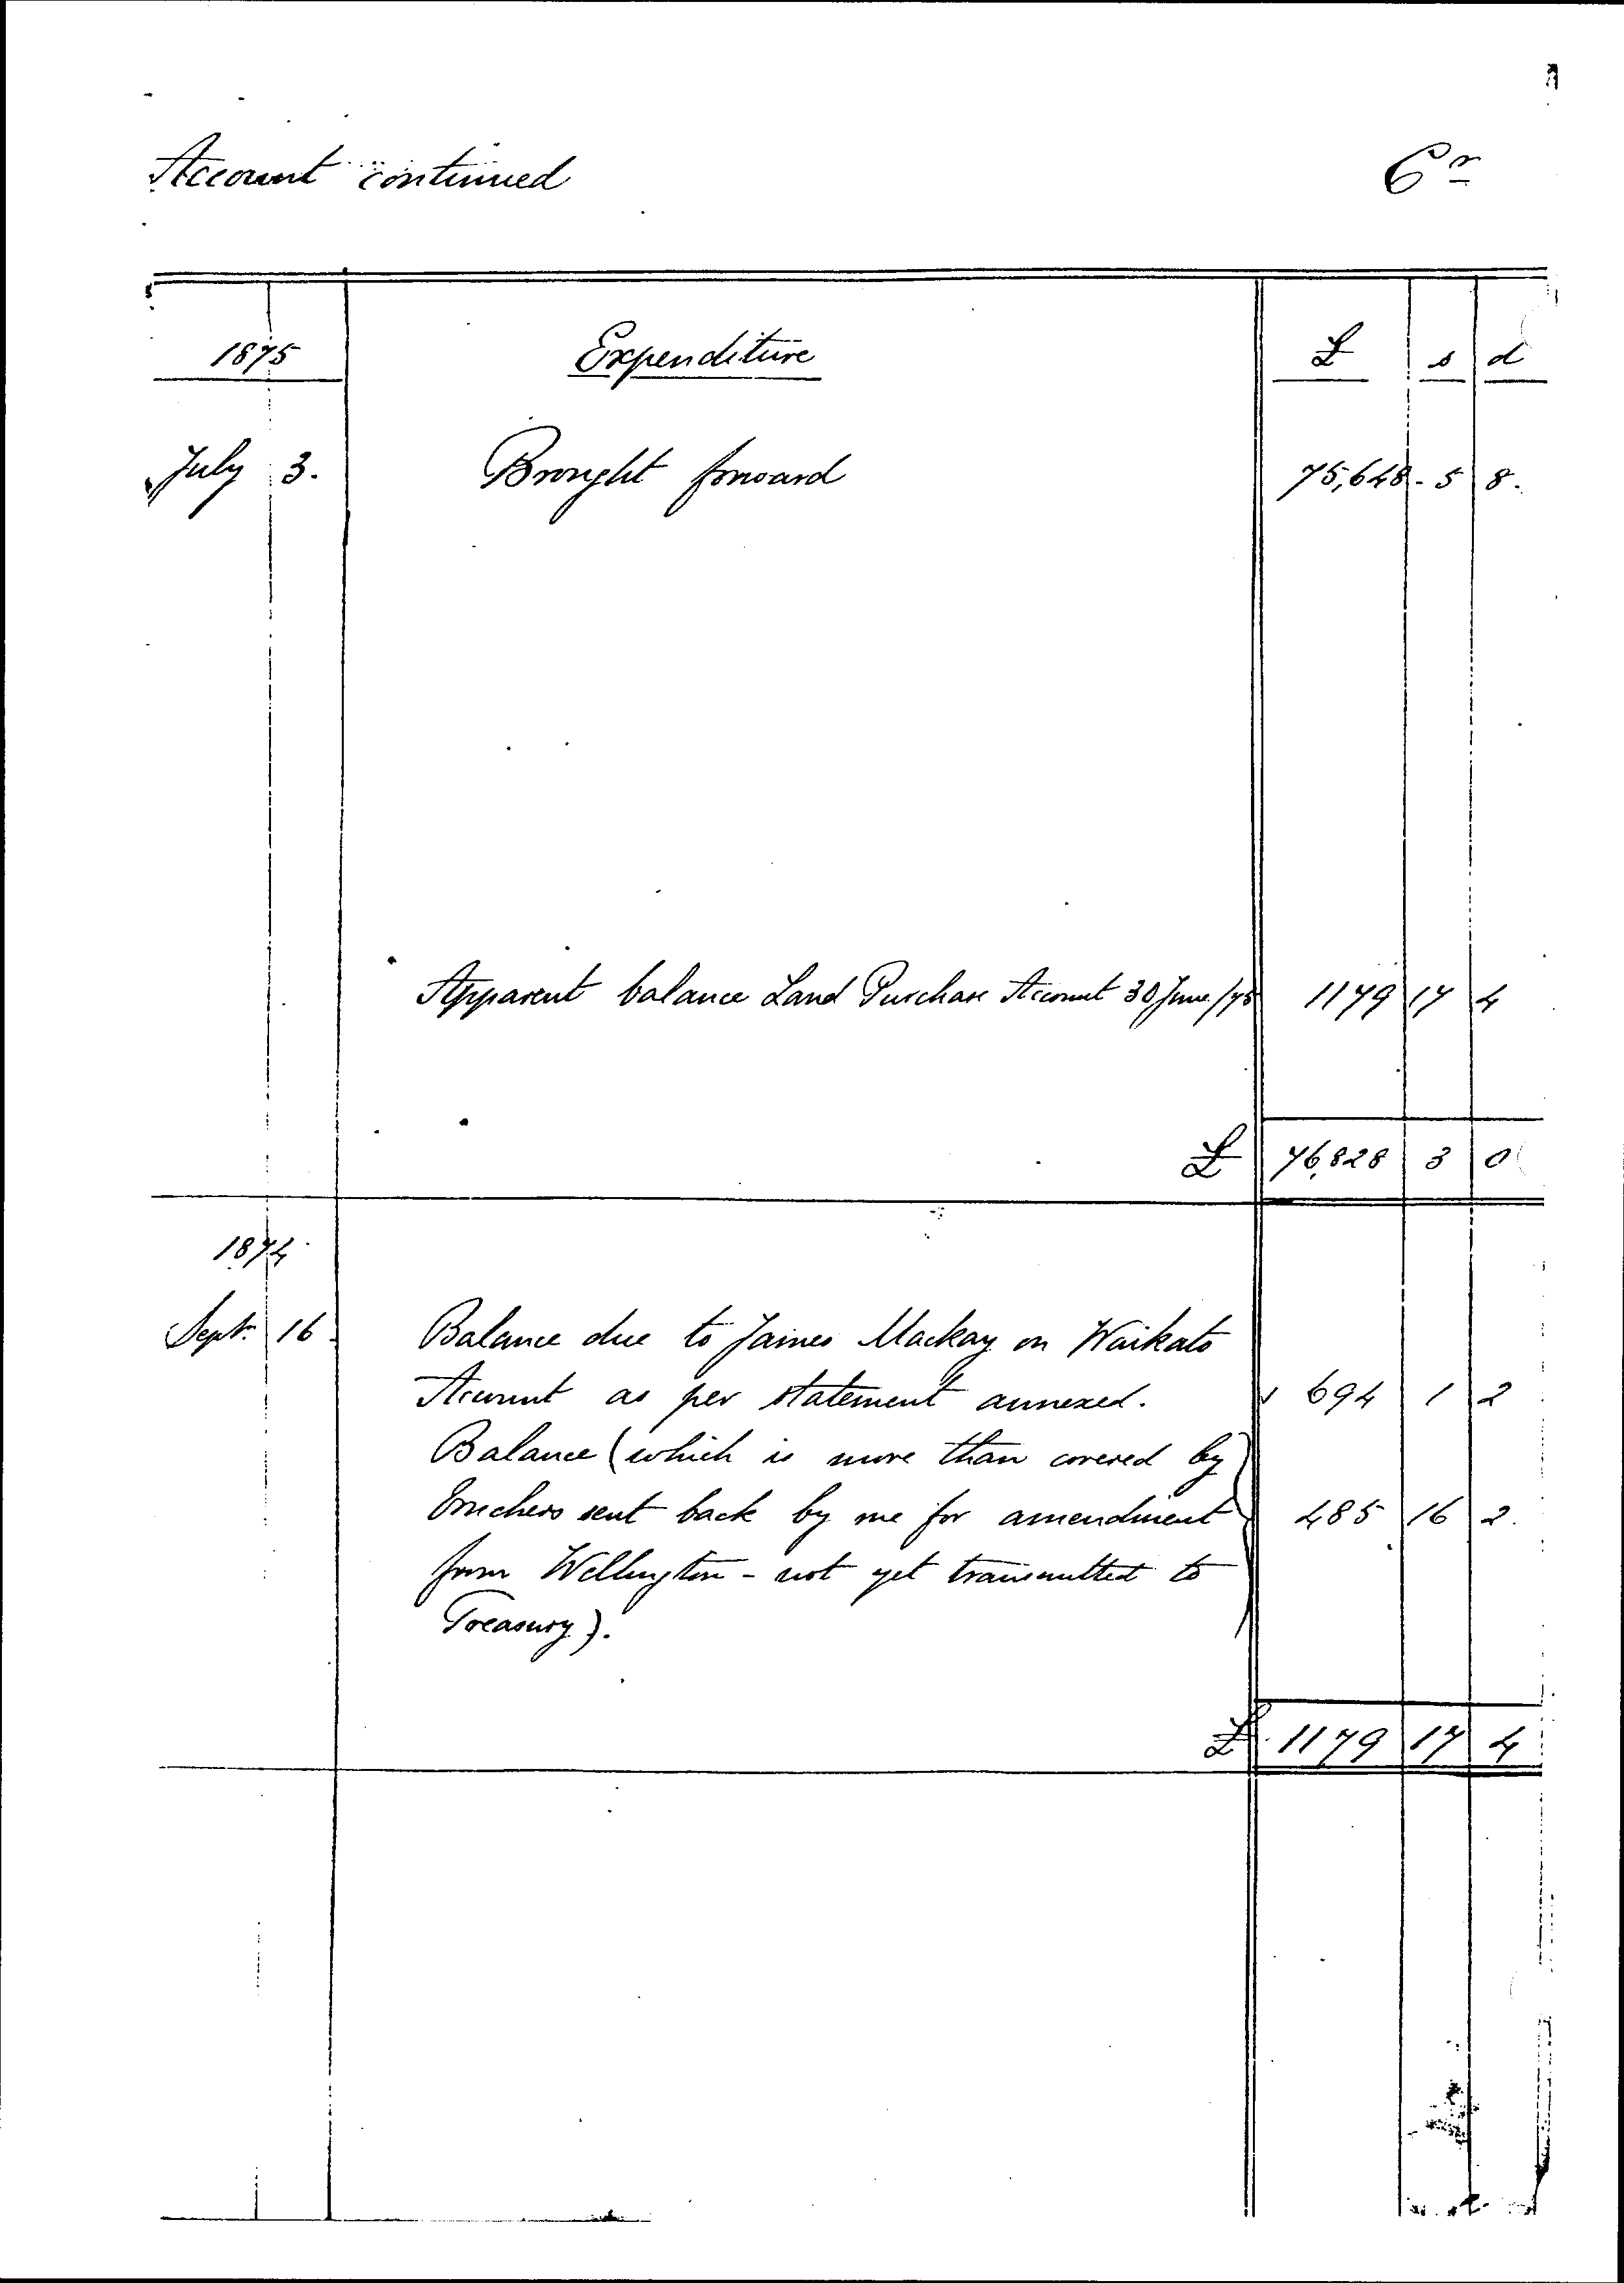 Account continued Cr
1875 Expenditure £ s d
July 3. Brought forward 75,648 - 5 8.
Apparent balance Land Purchase Account 30 June /75 1179 17 4
£ 76,828 3 0
1874
Sept. 16 Balance due to James Mackay on Waikato
Account as per statement annexed. 694 1 2
Balance (which is more than covered by
vouchers sent back by me for amendment 485 16 2.
from Wellington - not yet transmitted to
Treasury).
£ 1179 17 4